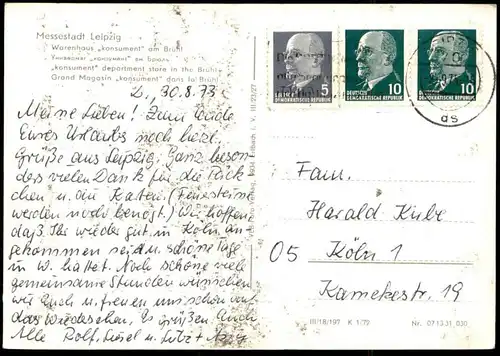 Messestadt Leipzig
Warenhaus „konsument" am Brühl
Универмаг „консумент" ам Брюль
„konsument" department store in the Brühl
Grand Magasin „konsument" dans la Brühl
L., 30.8.73
Meine Lieben! Zum Ende
Eures Urlaubes noch herzl.
Grüße aus Leipzig. Ganz beson
ders vielen Dank für die Päck
chen u. die Karten. (Feuersteine
werden noch benötigt.) Wir hoffen,
daß Ihr wieder gut in Köln an-
gekommen seid u. schöne Tage
in W. hattet. Noch schöne viele
gemeinsame Stunden wünschen
wir Euch u. freuen uns schon auf
das Wiedersehen. Es grüßen Euch
Alle Rolf, Lisel u. Lutz +
5
DEUTSCHE
DEMOKRATISCHE REPUBLIK
10
DEUTSCHE
DEMOKRATISCHE REPUBLIK
10
DEMOKRATISCHE REPUBLIK
ds
Fam.
Harald Kube
05 Köln 1
Kamekestr. 19
III/18/197 K 1/72
Nr. 07 13 31 030